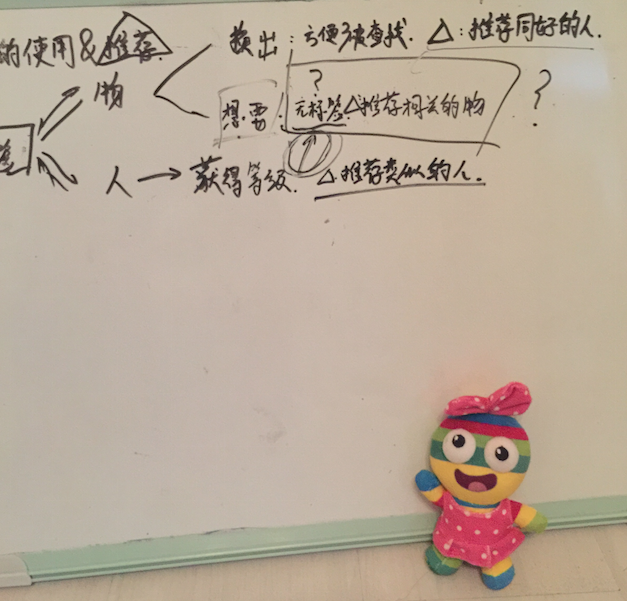 的使用&推荐.
换出：方便被查找. △：推荐同好的人.
物
?
想要. 无标签△推荐相关的物 ?
签
人 → 获得等级. △推荐类似的人.